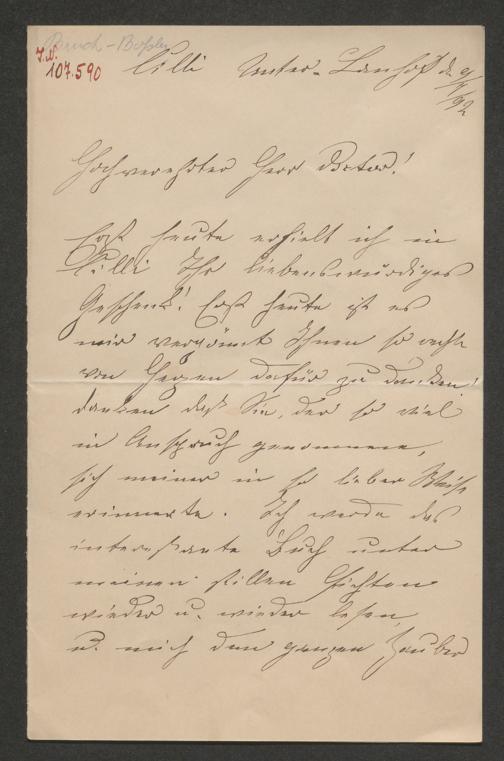 I.N.
107.590
Cilli Unter-Lanhof d. 9/5/92
Hochverehrter Herr Doctor!
Erst heute erhielt ich in
Cilli Ihr liebenswürdiges
Geschenk! Erst heute ist es
mir vergönnt Ihnen so recht
von Herzen dafür zu danken!
danken daß Sie, der so viel
in Anspruch genommene,
sich meiner in so lieber Weise
erinnerte. Ich werde das
interessante Buch unter
meinen stillen Fichten
wieder u. wieder lesen
u. mich dem ganzen Zauber